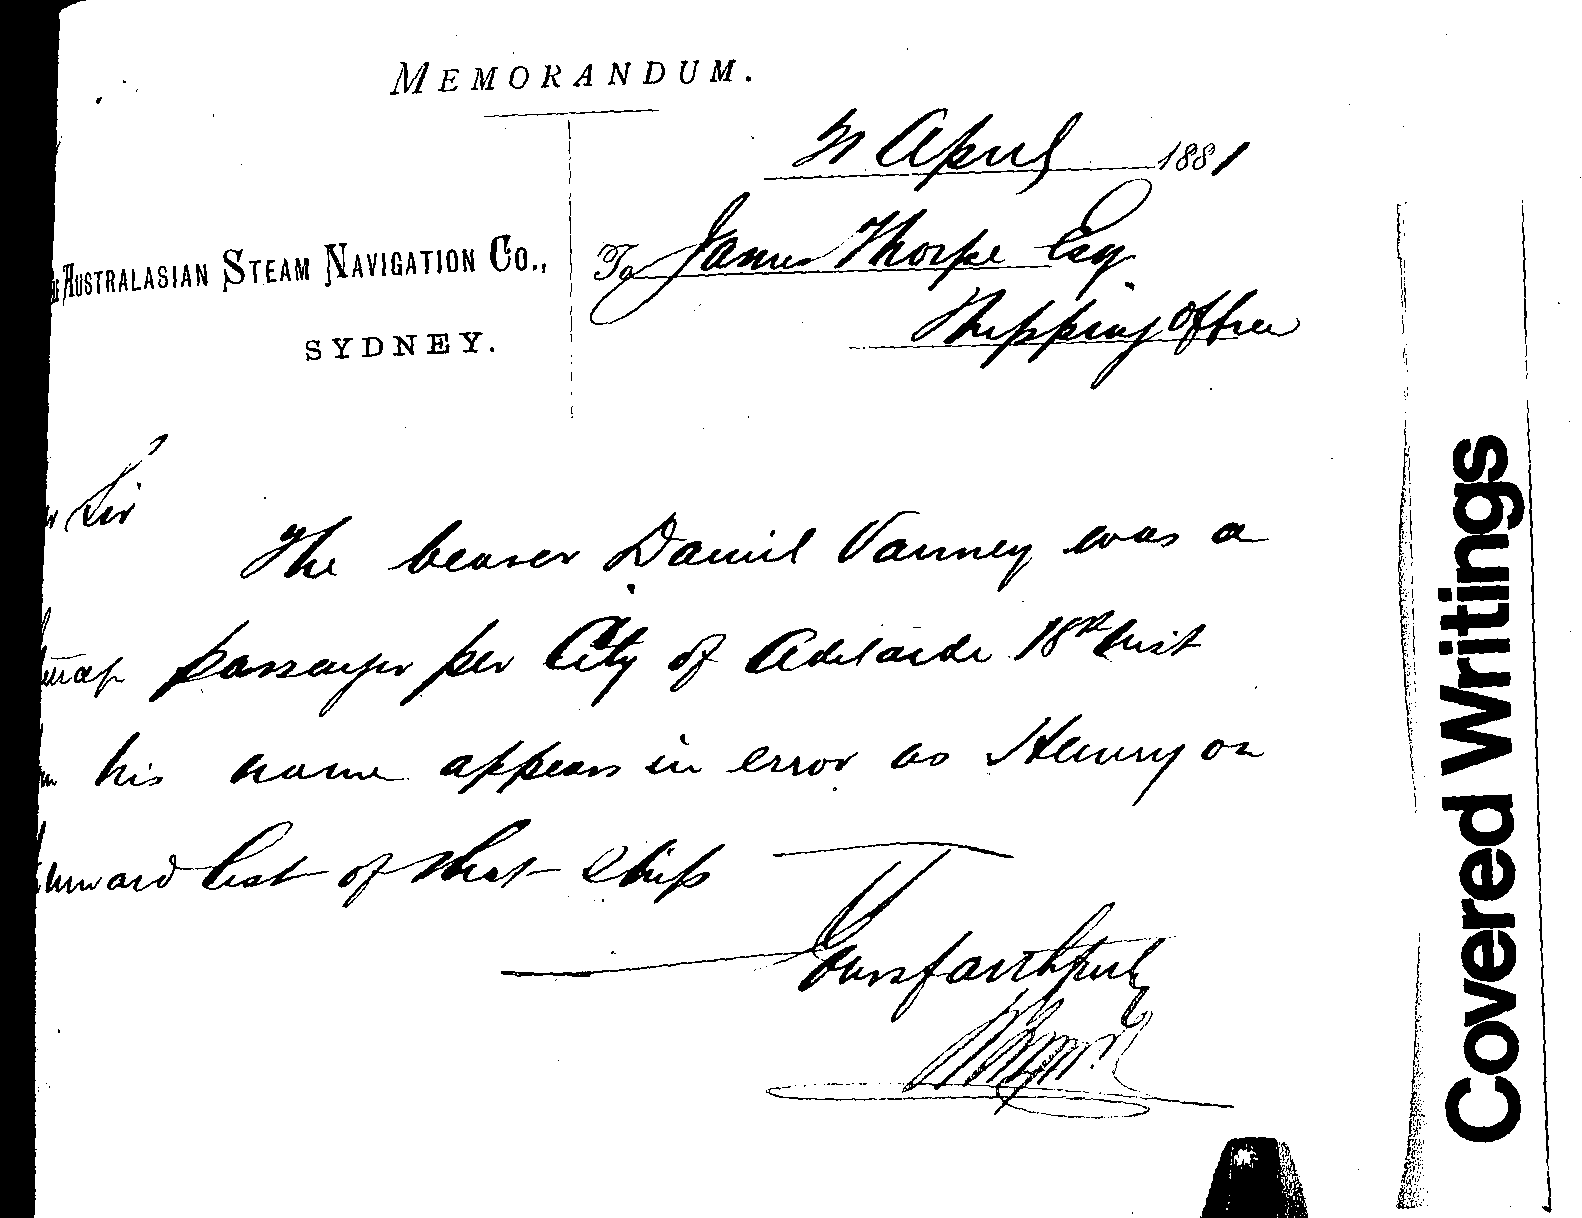 MEMORANDUM.
21 April 1881
AUSTRALASIAN STEAM NAVIGATION CO.,
SYDNEY.
To James Thorpe Esq
Shipping Office
Sir
The bearer Daniel Vanney was a
passenger per City of Adelaide 18th inst
his name appears in error as Henry on
list of that ship
Yours faithfully
Covered Writings